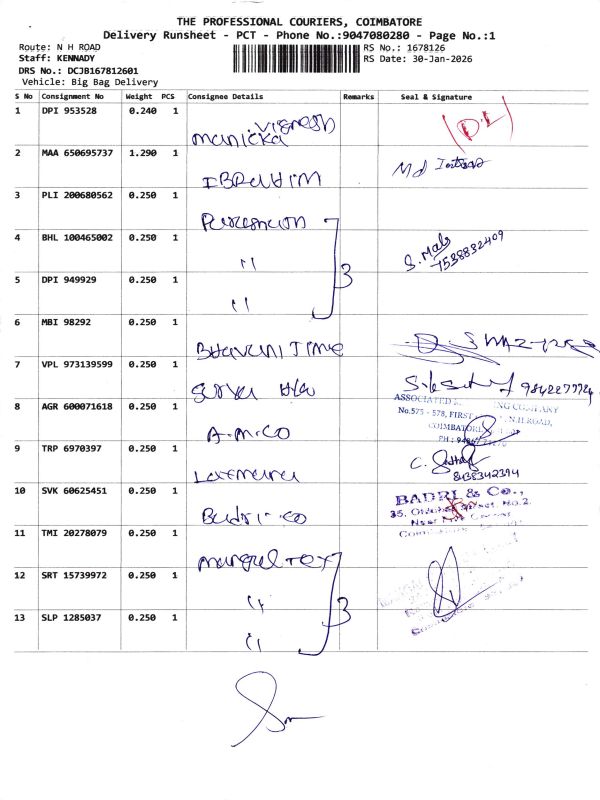 THE PROFESSIONAL COURIERS, COIMBATORE
Delivery Runsheet - PCT - Phone No.:9047080280 - Page No.:1
Route: N H ROAD
RS No.: 1678126
Staff: KENNADY
RS Date: 30-Jan-2026
DRS No.: DCJB167812601
Vehicle: Big Bag Delivery
S No Consignment No Weight PCS Consignee Details Remarks Seal & Signature
1 DPI 953528 0.240 1 Manicka Vignesh (DL)
2 MAA 650695737 1.290 1 IBRAHIM Md
3 PLI 200680562 0.250 1
4 BHL 100465002 0.250 1 " 3 S. Mala
7538832409
5 DPI 949929 0.250 1 "
6 MBI 98292 0.250 1 Bhavani Time
7 VPL 973139599 0.250 1 Surya
8 AGR 600071618 0.250 1 A.M.CO ASSOCIATED COMPANY
No.575 - 578, FIRST N.H.ROAD,
COIMBATORE
PH :
9 TRP 6970397 0.250 1 C.
8438342394
10 SVK 60625451 0.250 1 Badri co BADRI & Co.,
35, Street, No.2.
11 TMI 20278079 0.250 1 Mangal Tex
12 SRT 15739972 0.250 1 " 3
13 SLP 1285037 0.250 1 "